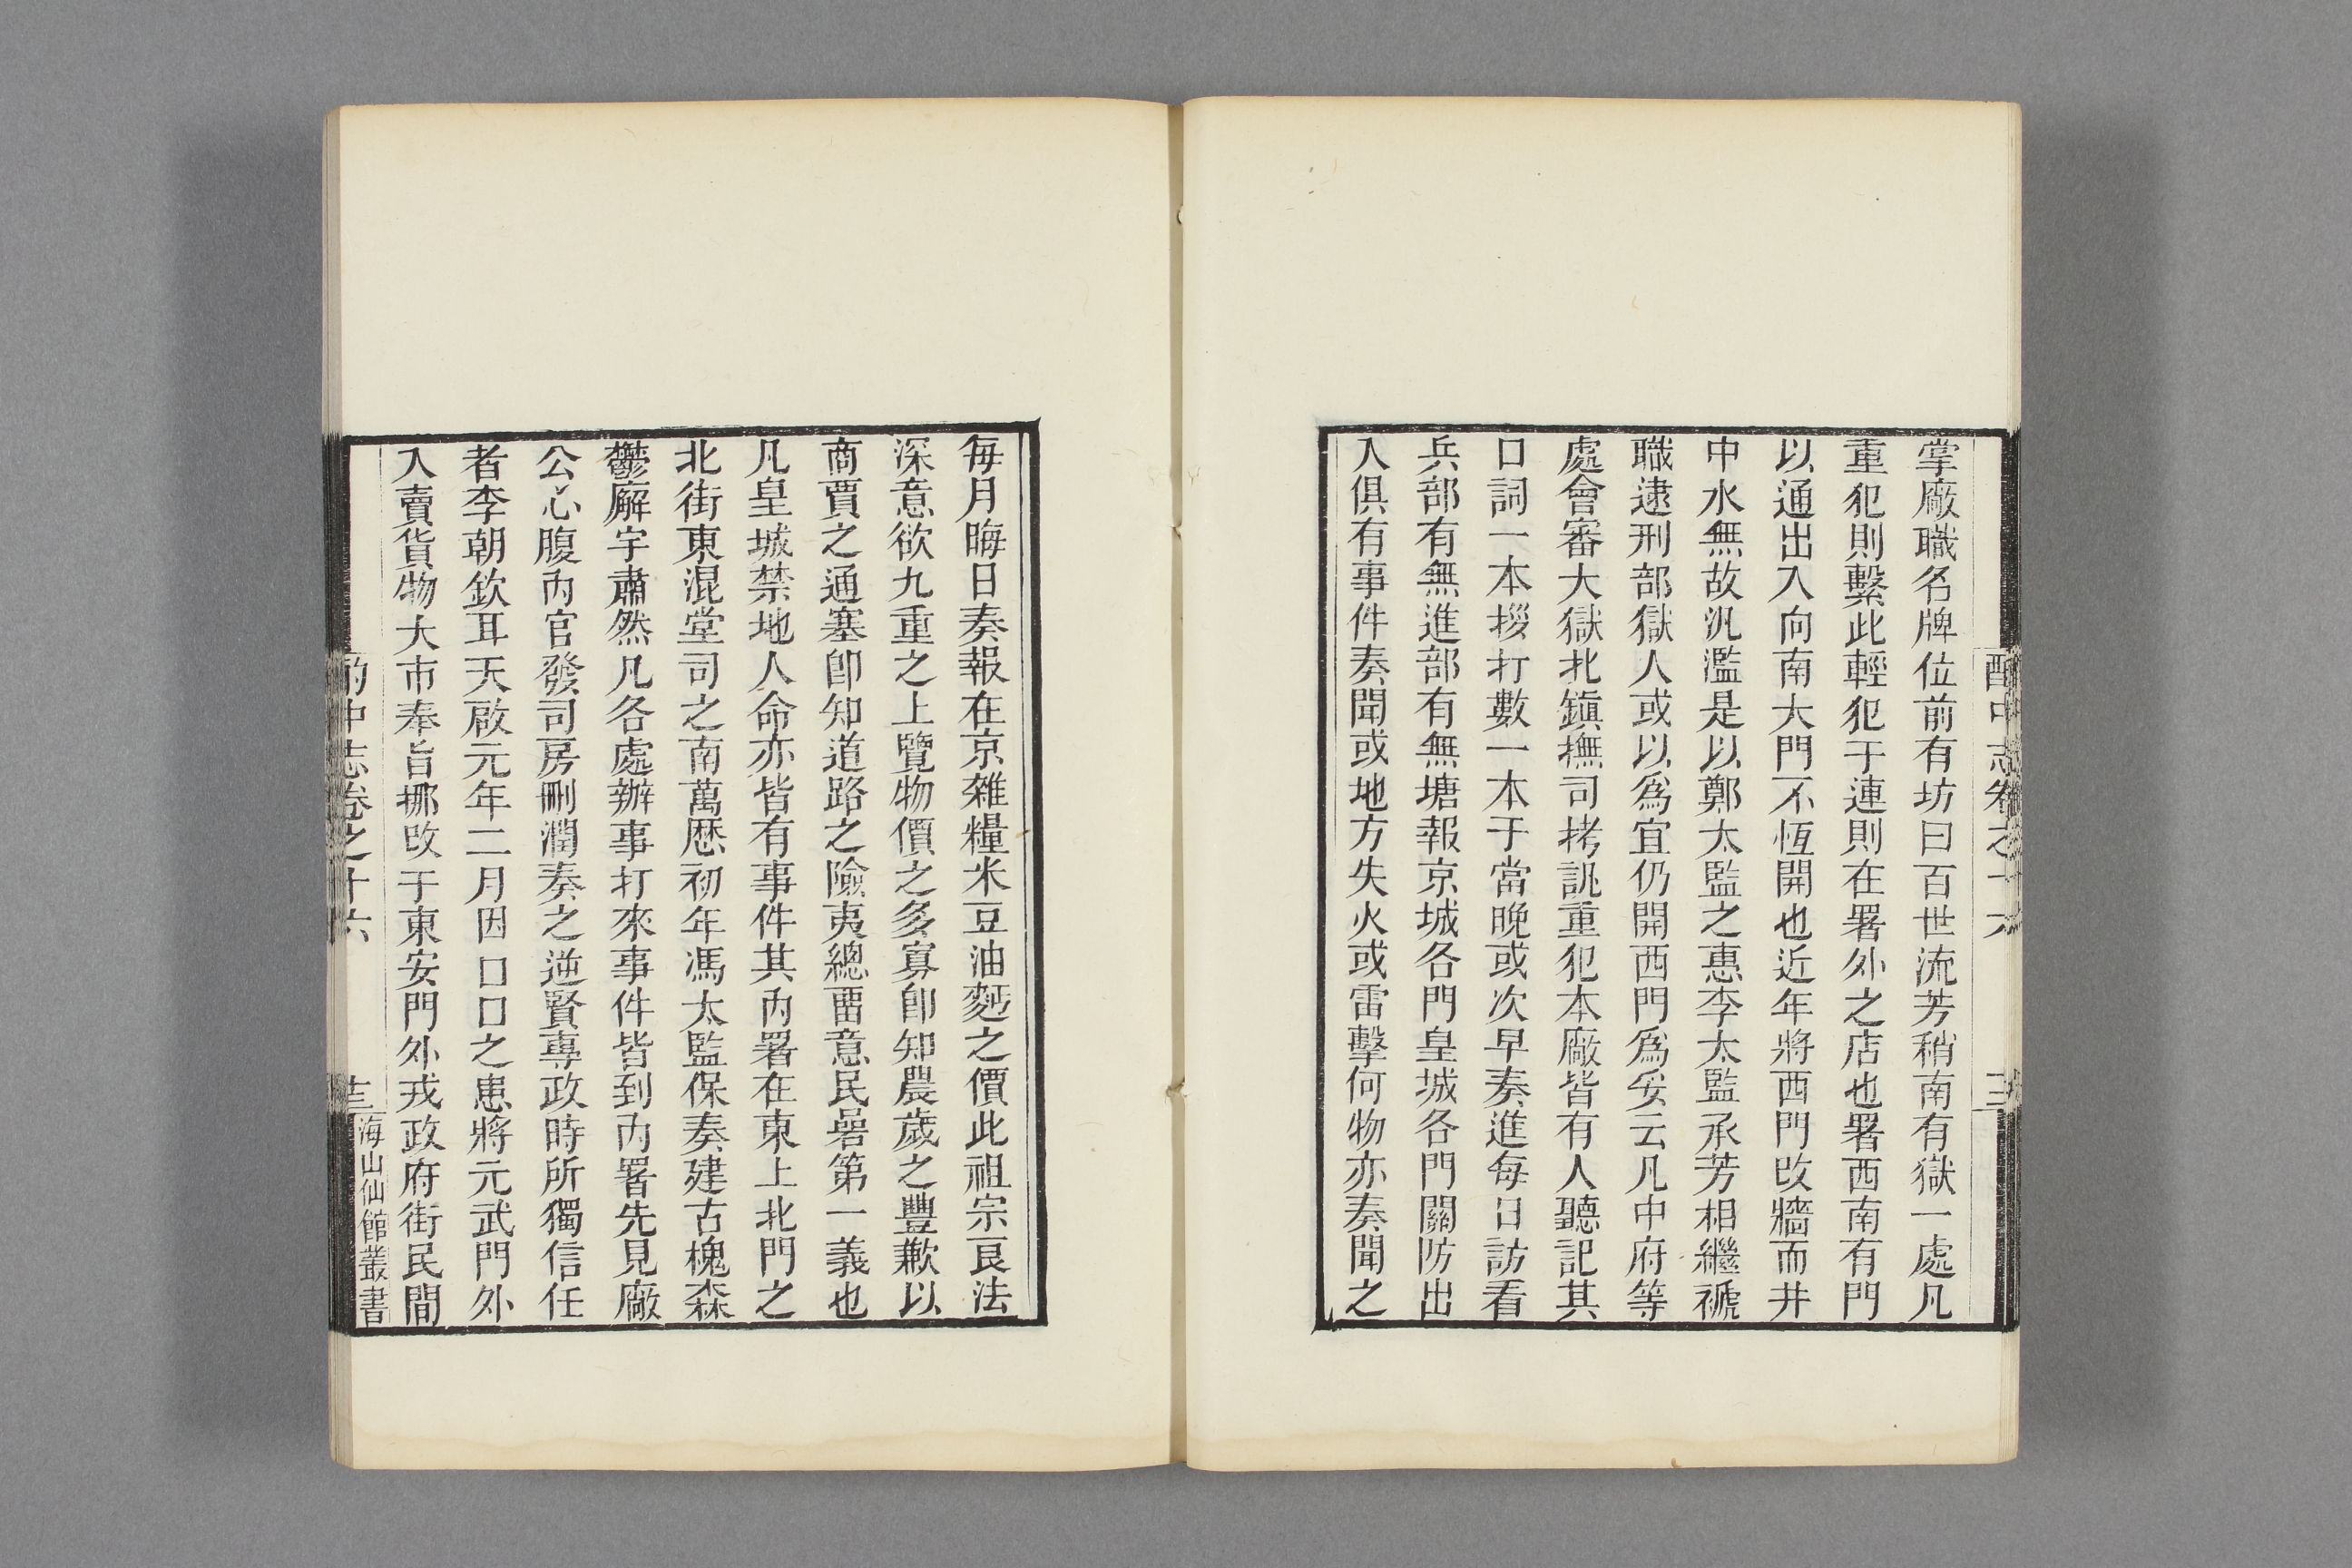 酌中志卷之十六
掌廠職名牌位前有坊曰百世流芳稍南有獄一處凡
重犯則繫此輕犯于連則在署外之店也署西南有門
以通出入向南大門不恆開也近年將西門改牆而井
中水無故汎濫是以鄭太監之惠李太監承芳相繼禠
職逮刑部獄人或以爲宜仍開西門爲妥云凡中府等
處會審大獄北鎮撫司拷訊重犯本廠皆有人聽記其
口詞一本拶打數一本于當晚或次早奏進每日訪看
兵部有無進部有無塘報京城各門皇城各門關防出
入俱有事件奏聞或地方失火或雷擊何物亦奏聞之
每月晦日奏報在京雜糧米豆油麪之價此祖宗良法
深意欲九重之上覽物價之多寡卽知農歲之豐歉以
商賈之通塞卽知道路之險夷總畱意民喦第一義也
凡皇城禁地人命亦皆有事件其內署在東上北門之
北街東混堂司之南萬厯初年馮太監保奏建古槐森
鬱廨宇肅然凡各處辦事打來事件皆到內署先見廠
公心腹內官發司房刪潤奏之逆賢專政時所獨信任
者李朝欽耳天啟元年二月因口口之患將元武門外
入賣貨物大市奉旨挪改于東安門外戎政府街民間
酌中志卷之十六
海山仙館叢書